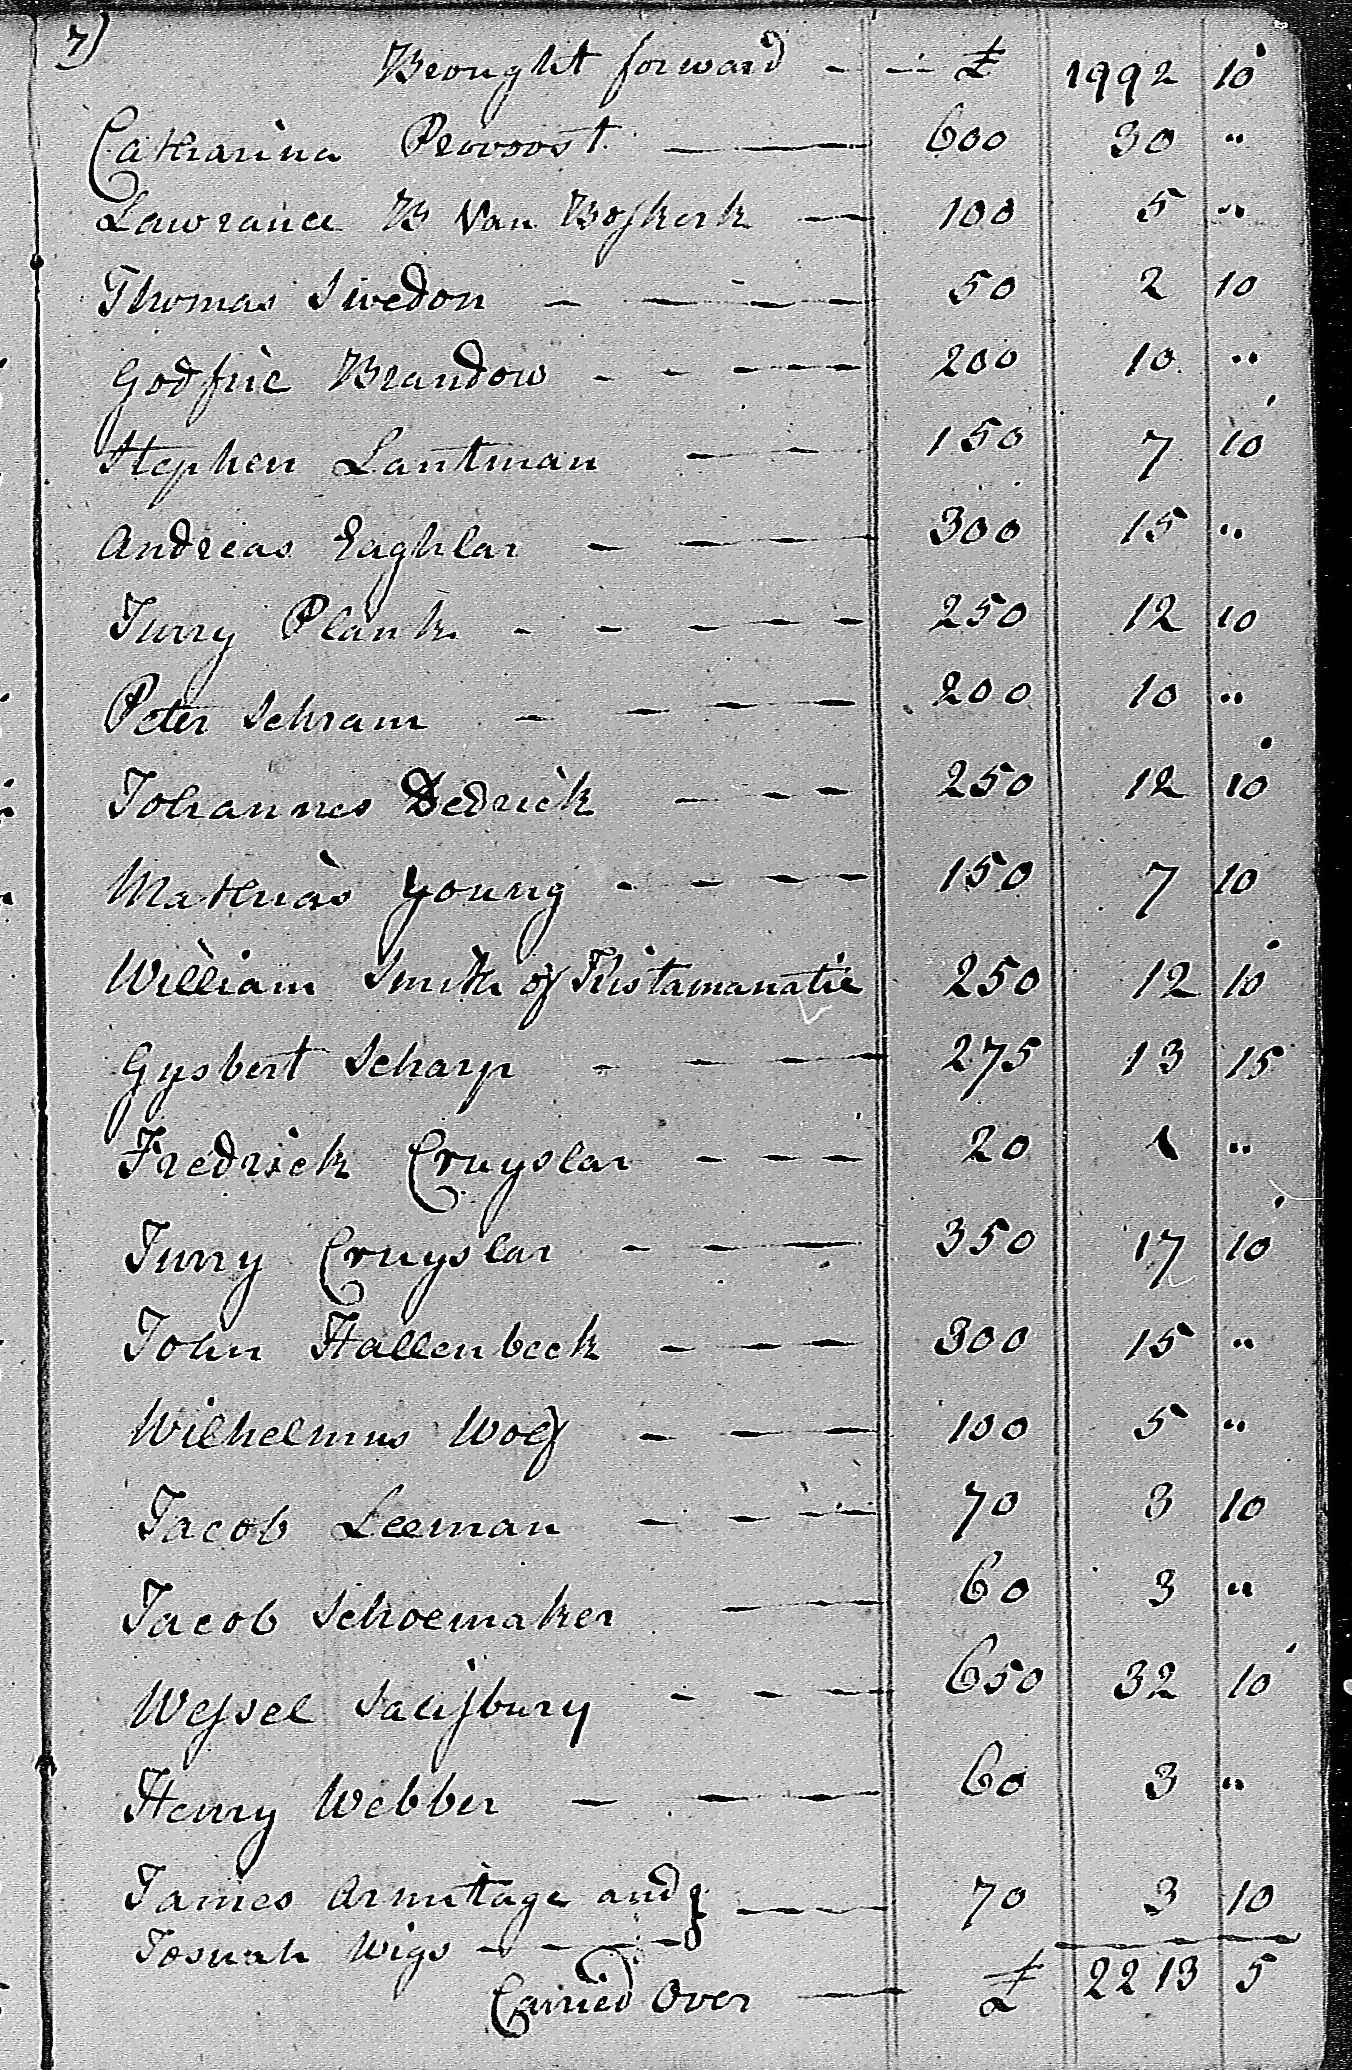 7)
Brought forward £ 1992 10
Catharina Provoost 600 30 "
Lawrance B Van Boskerk 100 5 "
Thomas Swedon 50 2 10
Godfrie Brandow 200 10 "
Stephen Lantman 150 7 10
Andreas Eaghlar 300 15 "
Jurry Plank 250 12 10
Peter Schram 200 10 "
Johannes Dedrick 250 12 10
Mathias Young 150 7 10
William Smith of Kistamanatie 250 12 10
Gysbert Scharp 275 13 15
Fredrick Cruyslar 20 1 "
Jurry Cruyslar 350 17 10
John Hallenbeck 300 15 "
Wilhelmus Wolf 100 5 "
Jacob Leeman 70 3 10
Jacob Schoemaker 60 3 "
Wessel Salisbury 650 32 10
Henry Webber 60 3 "
James Armitage and } 70 3 10
Josuah Wigs
Carried Over £ 2213 5